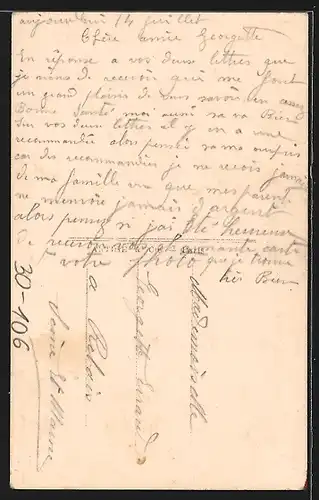 aujourd'hui 14 juillet
Chère amie Georgette
En réponse a vos deux lettres que
je viens de recevoir qui me font
un grand plaisir de vous savoir en
Bonne Santé moi aussi sa va Bien
Sur vos deux lettres il y en a une
recommandée alors pensez sa ma
car des recommandées je ne recois jamais
de ma famille vu que mes parents
ne menvoie jamais d'argent
alors pensez si j'ai été heureux
de recevoir carte
votre photo que je trouve
très Bien
Mademoiselle
Georgette
a Rebais
Seine et Marne
30-106